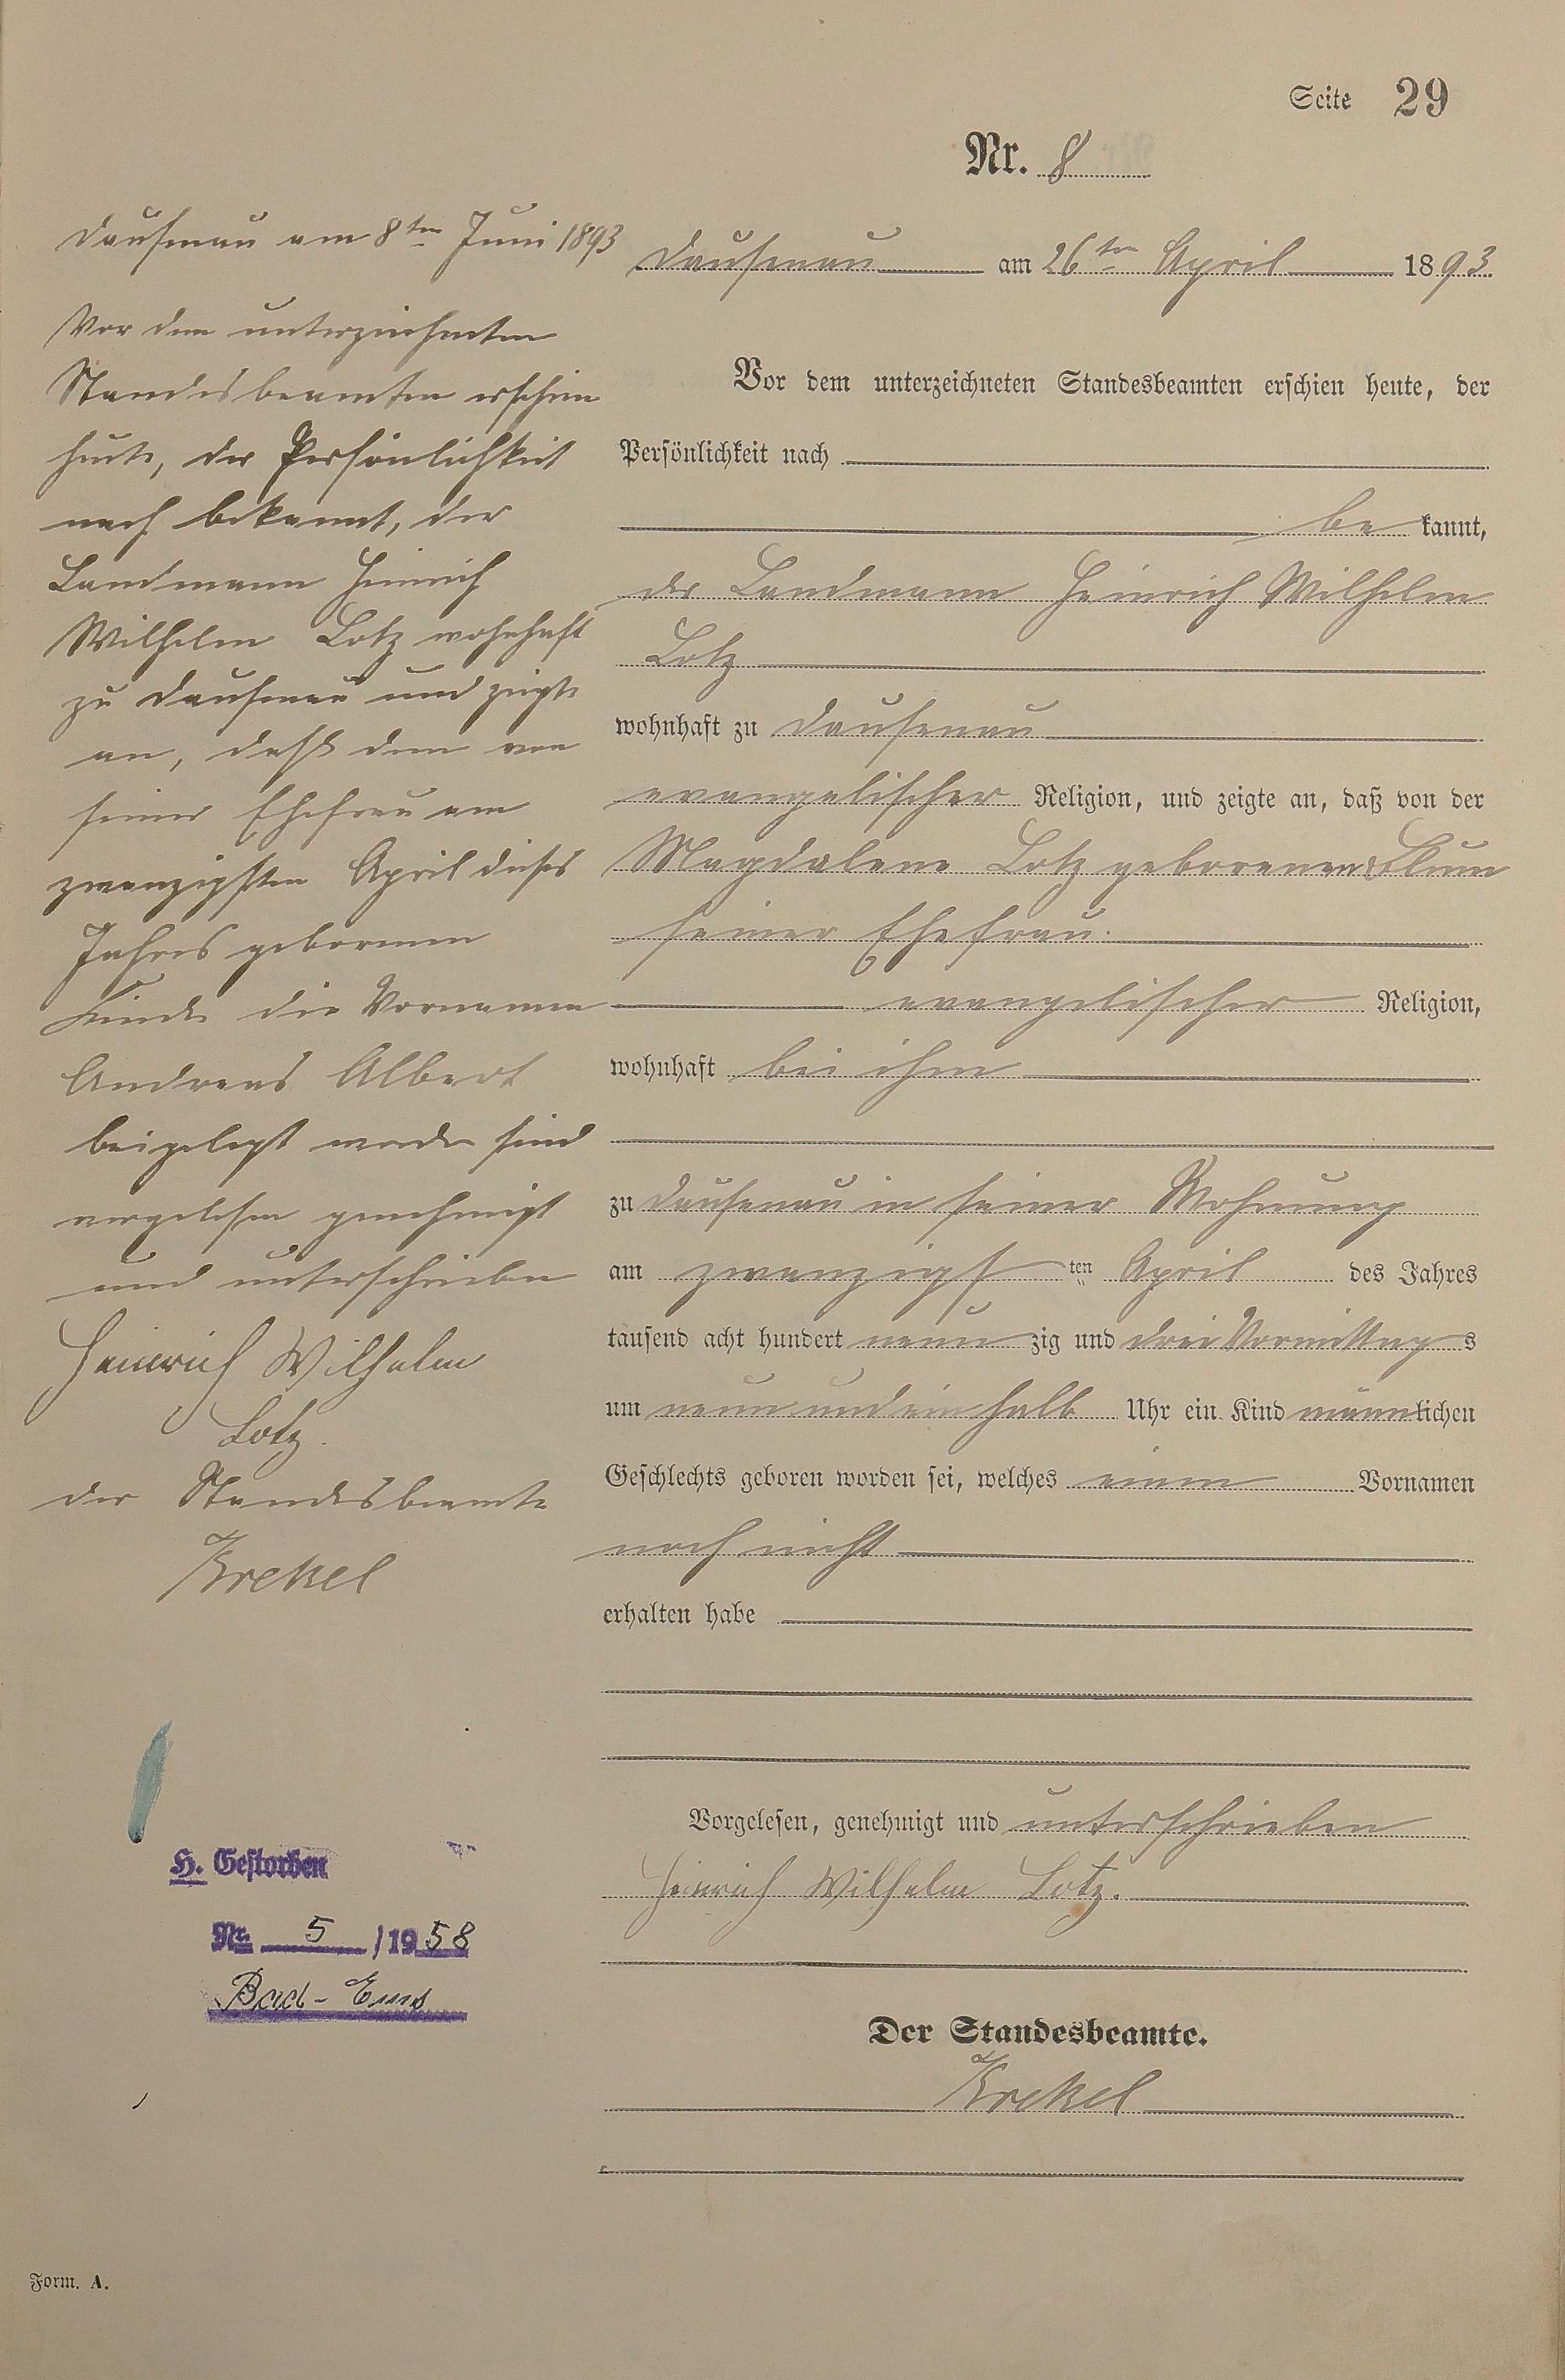 Seite 29
Nr. 8
Dausenau am 26ten April 1893
Vor dem unterzeichneten Standesbeamten erschien heute, der
Persönlichkeit nach
bekannt,
der Landmann Heinrich Wilhelm
Lotz
wohnhaft zu Dausenau
evangelischer Religion, und zeigte an, daß von der
Magdalene Lotz geborenen
seiner Ehefrau
evangelischer Religion,
wohnhaft bei ihm
zu Dausenau in seiner Wohnung
am zwanzigsten April des Jahres
tausend acht hundert neunzig und drei Vormittags
um neun und ein halb Uhr ein Kind männlichen
Geschlechts geboren worden sei, welches einen Vornamen
noch nicht
erhalten habe
Vorgelesen, genehmigt und unterschrieben
Heinrich Wilhelm Lotz.
Der Standesbeamte.
Krekel
Dausenau am 8ten Juni 1893
Vor dem unterzeichneten
Standesbeamten erschien
heute, der Persönlichkeit
nach bekannt, der
Landmann Heinrich
Wilhelm Lotz wohnhaft
zu Dausenau und zeigte
an, daß dem von
seiner Ehefrau am
zwanzigsten April dieses
Jahres geborenen
Kinde die Vornamen
Andreas Albert
beigelegt worden sind
vorgelesen genehmigt
und unterschrieben
Heinrich Wilhelm
Lotz.
Der Standesbeamte
Krekel
H. Gestorben
Nr. 5 / 1958
Bad-Ems
Form. A.